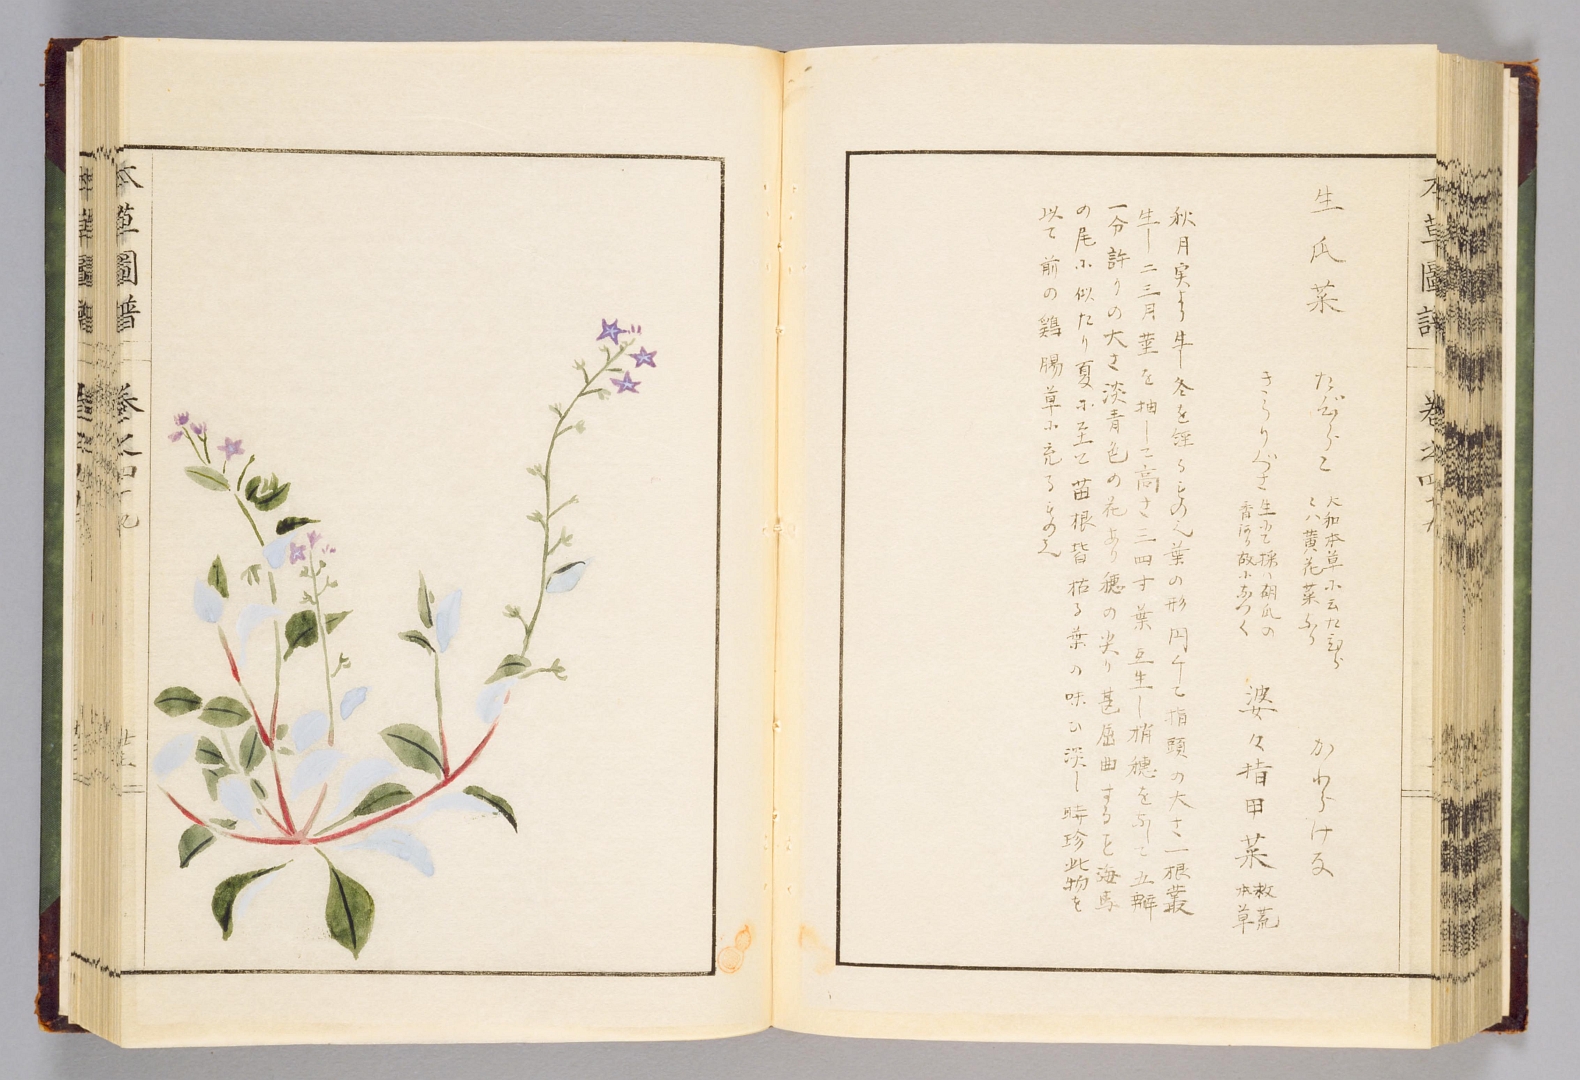 生瓜菜 たびらこ 大和本草に云たびら
こハ黄花菜なり かわらけな
きうりぐさ 生にて揉ハ胡瓜の
香有故になつく 婆々指甲菜 救荒
本草
秋月実より生冬を経るものハ葉の形円くして指頭の大さ一根叢
生し二三月茎を抽して高さ三四寸葉互生し梢穂をなして五瓣
一分許りの大さ淡青色の花あり穂の尖り甚屈曲すること海馬
の尾に似たり夏に至て苗根皆枯る葉の味ひ淡し時珍此物を
以て前の鶏腸草に充るものハ
本草圖譜 巻之四十九
本草圖譜 巻之四十九